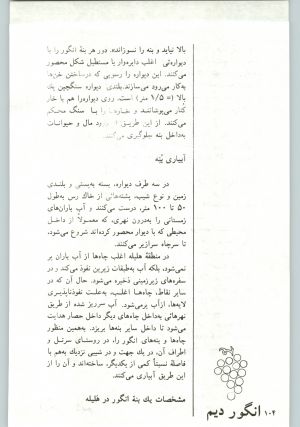 بالا نیاید و بنه را نسوزاند. دور هر بنهٔ انگور را با
دیواره‌ئی اغلب دایره‌وار یا مستطیل شکل محصور
می‌کنند. این دیواره را رسوبی که درساختن خن‌ها
به‌کار می‌رود می‌سازند. بلندی دیواره سنگچین یك
بالا (= ۱/۵ متر) است. روی دیواره‌را هم با خار
کنار می‌پوشانند و را با سنگ محکم
می‌کنند. از این طریق از ورود مال و حیوانات
به‌داخل بنه جلوگیری می‌کنند.
آبیاری بُنه
در سه طرف دیواره، بسته به‌بستی و بلندی
زمین و نوع شیب، پشته‌هائی از خاك رس به‌طول
۵۰ تا ۱۰۰ متر، درست می‌کنند و آبِ باران‌های
زمستانی را به‌درون نهری، که معمولاً از داخل
محیطی که با دیوار محصور کرده‌اند شروع می‌شود،
تا سرچاه سرازیر می‌کنند.
در منطقهٔ هلیله اغلب چاه‌ها از آب باران پر
نمی‌شود، بلکه آب به‌طبقات زیرین نفوذ می‌کند و در
سفره‌های زیرزمینی ذخیره می‌شود. حال آن که در
سایر نقاط، چاه‌ها اغلب، به‌علت نفوذناپذیری
لایه‌ها، ازآب پرمی‌شود. آب سرریز شده از طریق
نهرهائی به‌داخل چاه‌های دیگر داخل حصار هدایت
می‌شود تا داخل سایر بنه‌ها بریزد. به‌همین منظور
چاه‌ها و بنه‌های انگور را، در روستای سرتل و
اطراف آن، در یك جهت و در شیبی نزدیك به‌هم با
فاصلهٔ نسبتاً کمی از یکدیگر، ساخته‌اند و آن را از
این طریق آبیاری می‌کنند.
مشخصات یك بنهٔ انگور در هَلیله
۱۰۴ انگور دیم